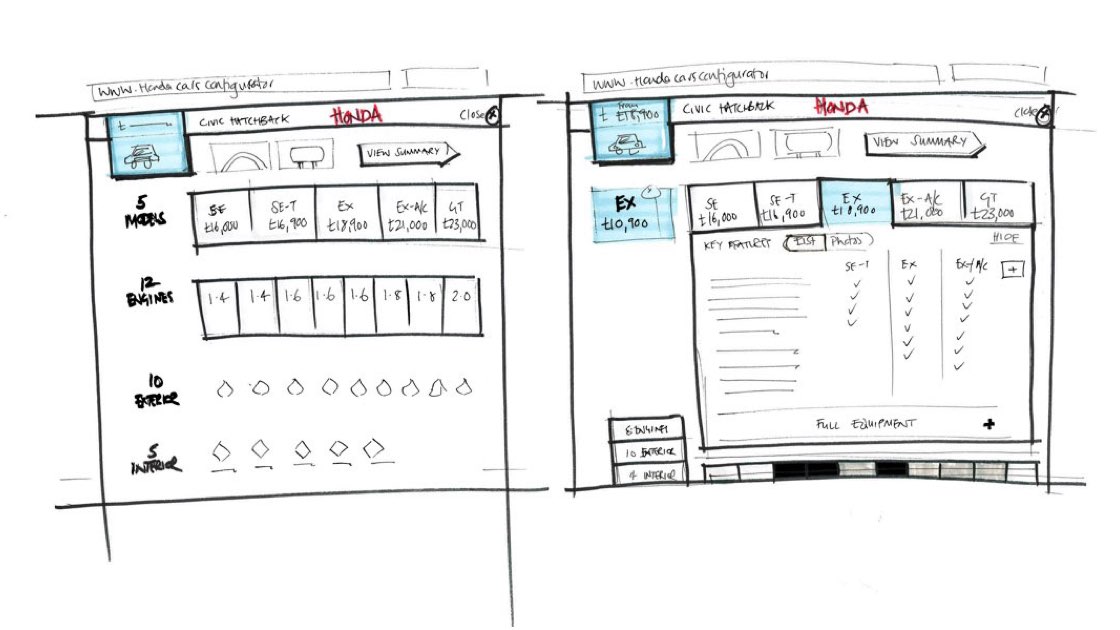 www.Honda cars configurator
£
CIVIC HATCHBACK
HONDA
Close X
VIEW SUMMARY
5
MODELS
SE
£16,000
SE-T
£16,900
EX
£18,900
EX-A/C
£21,000
GT
£23,000
12
ENGINES
1.4
1.4
1.6
1.6
1.6
1.8
1.8
2.0
10
EXTERIOR
5
INTERIOR
www.Honda cars configurator
from
£18,900
CIVIC HATCHBACK
HONDA
close X
VIEW SUMMARY
EX
£10,900
SE
£16,000
SE-T
£16,900
EX
£18,900
EX-A/C
£21,000
GT
£23,000
KEY FEATURES
LIST
Photos
HIDE
SE-T
EX
EX-A/C
+
FULL EQUIPMENT
+
8 ENGINES
10 EXTERIOR
4 INTERIOR